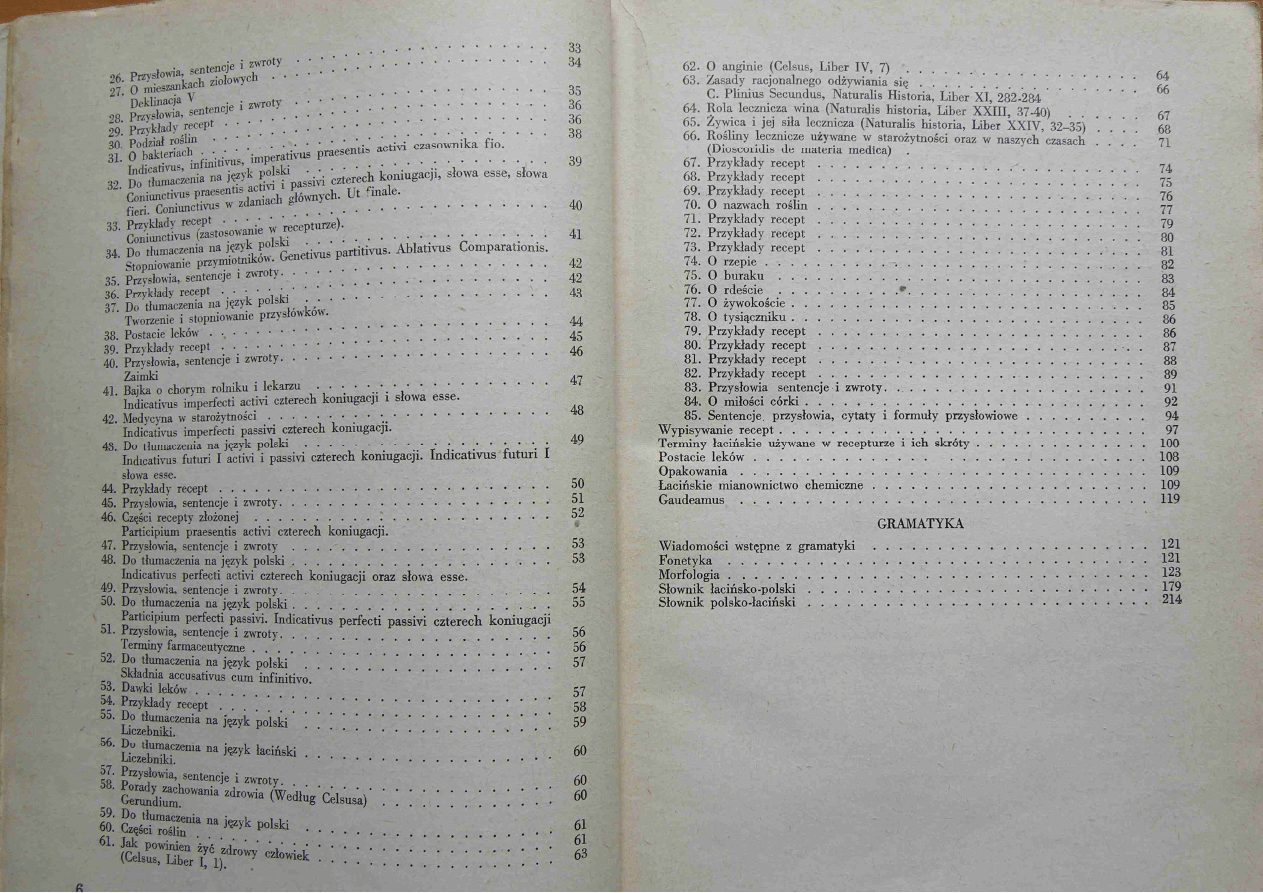 26. Przysłowia, sentencje i zwroty . . . 33
27. O mieszankach ziołowych . . . 34
Deklinacja V
28. Przysłowia, sentencje i zwroty . . . 35
29. Przykłady recept . . . 36
30. Podział roślin . . . 36
31. O bakteriach . . . 38
Indicativus, infinitivus, imperativus praesentis activi czasownika fio.
32. Do tłumaczenia na język polski . . . 39
Coniunctivus praesentis activi i passivi czterech koniugacji, słowa esse, słowa
fieri. Coniunctivus w zdaniach głównych. Ut finale.
33. Przykłady recept . . . 40
Coniunctivus (zastosowanie w recepturze).
34. Do tłumaczenia na język polski . . . 41
Stopniowanie przymiotników. Genetivus partitivus. Ablativus Comparationis.
35. Przysłowia, sentencje i zwroty. . . . 42
36. Przykłady recept . . . 42
37. Do tłumaczenia na język polski . . . 43
Tworzenie i stopniowanie przysłówków.
38. Postacie leków . . . 44
39. Przykłady recept . . . 45
40. Przysłowia, sentencje i zwroty. . . . 46
Zaimki
41. Bajka o chorym rolniku i lekarzu . . . 47
Indicativus imperfecti activi czterech koniugacji i słowa esse.
42. Medycyna w starożytności . . . 48
Indicativus imperfecti passivi czterech koniugacji.
43. Do tłumaczenia na język polski . . . 49
Indicativus futuri I activi i passivi czterech koniugacji. Indicativus futuri I
słowa esse.
44. Przykłady recept . . . 50
45. Przysłowia, sentencje i zwroty. . . . 51
46. Części recepty złożonej . . . 52
Participium praesentis activi czterech koniugacji.
47. Przysłowia, sentencje i zwroty . . . 53
48. Do tłumaczenia na język polski . . . 53
Indicativus perfecti activi czterech koniugacji oraz słowa esse.
49. Przysłowia, sentencje i zwroty. . . . 54
50. Do tłumaczenia na język polski . . . 55
Participium perfecti passivi. Indicativus perfecti passivi czterech koniugacji
51. Przysłowia, sentencje i zwroty. . . . 56
Terminy farmaceutyczne . . . 56
52. Do tłumaczenia na język polski . . . 57
Składnia accusativus cum infinitivo.
53. Dawki leków . . . 57
54. Przykłady recept . . . 58
55. Do tłumaczenia na język polski . . . 59
Liczebniki.
56. Do tłumaczenia na język łaciński . . . 60
Liczebniki.
57. Przysłowia, sentencje i zwroty. . . . 60
58. Porady zachowania zdrowia (Według Celsusa) . . . 60
Gerundium.
59. Do tłumaczenia na język polski . . . 61
60. Części roślin . . . 61
61. Jak powinien żyć zdrowy człowiek . . . 63
(Celsus, Liber I, 1).
6
62. O anginie (Celsus, Liber IV, 7) . . . 64
63. Zasady racjonalnego odżywiania się . . . 66
C. Plinius Secundus, Naturalis Historia, Liber XI, 282-284
64. Rola lecznicza wina (Naturalis historia, Liber XXIII, 37-40) . . . 67
65. Żywica i jej siła lecznicza (Naturalis historia, Liber XXIV, 32–35) . . . 68
66. Rośliny lecznicze używane w starożytności oraz w naszych czasach . . . 71
(Dioscoridis de materia medica) .
67. Przykłady recept . . . 74
68. Przykłady recept . . . 75
69. Przykłady recept . . . 76
70. O nazwach roślin . . . 77
71. Przykłady recept . . . 79
72. Przykłady recept . . . 80
73. Przykłady recept . . . 81
74. O rzepie . . . 82
75. O buraku . . . 83
76. O rdeście . . . 84
77. O żywokoście . . . 85
78. O tysiączniku . . . 86
79. Przykłady recept . . . 86
80. Przykłady recept . . . 87
81. Przykłady recept . . . 88
82. Przykłady recept . . . 89
83. Przysłowia sentencje i zwroty. . . . 91
84. O miłości córki . . . 92
85. Sentencje, przysłowia, cytaty i formuły przysłowiowe . . . 94
Wypisywanie recept . . . 97
Terminy łacińskie używane w recepturze i ich skróty . . . 100
Postacie leków . . . 108
Opakowania . . . 109
Łacińskie mianownictwo chemiczne . . . 109
Gaudeamus . . . 119
GRAMATYKA
Wiadomości wstępne z gramatyki . . . 121
Fonetyka . . . 121
Morfologia . . . 123
Słownik łacińsko-polski . . . 179
Słownik polsko-łaciński . . . 214